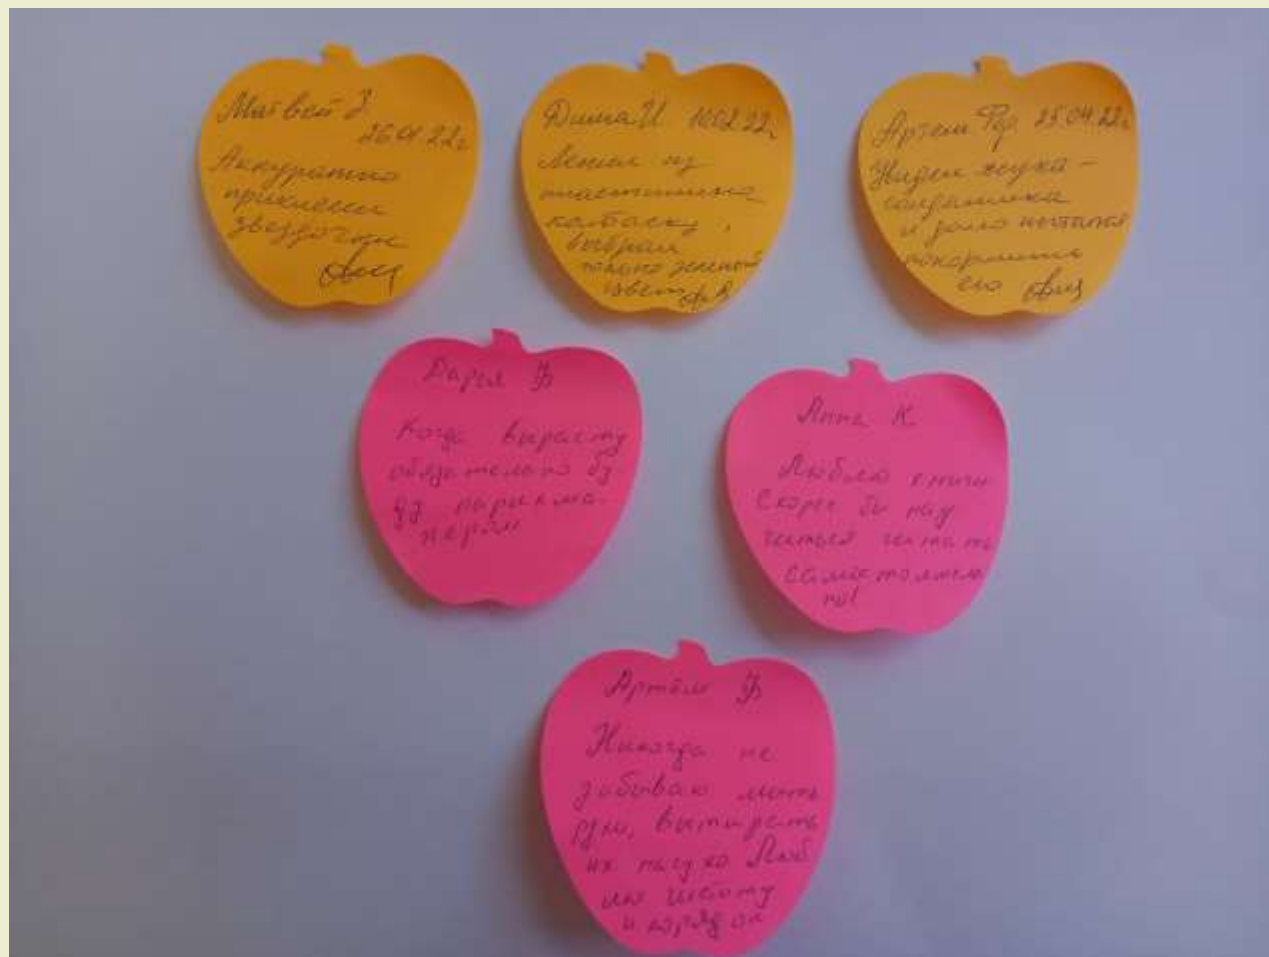 Матвей З
26.01.22г
Аккуратно
приклеил
звездочки
Дима И 10.02.22г
Лепил из
пластилина
колбаску,
выбрал
только зеленый
цвет
Артем Фёр. 25.04.22г
Увидел жука-
солдатика
и долго пытался
покормить
его
Дарья Ф
Когда вырасту
обязательно бу-
ду парикма-
хером
Анна К.
Люблю книги
Скорее бы нау
читься читать
самостоятель
но!
Артём Ф
Никогда не
забываю мыть
руки, вытирать
их насухо Люб
лю чистоту
и порядок